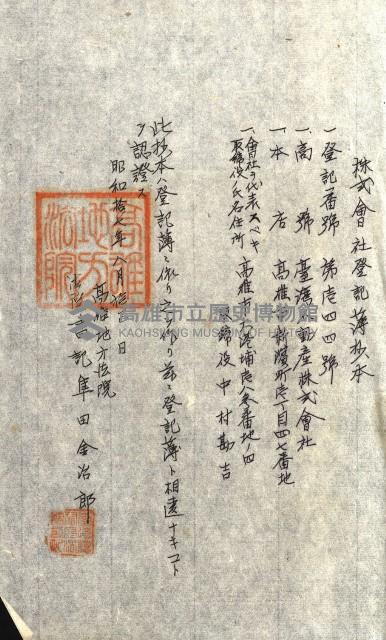 株式會社登記簿抄本
一、登記番號 第壱四四號
一、商號 臺灣動産株式會社
一、本店 高雄市新濱町壱丁目四七番地
一、會社ヲ代表スベキ
取締役ノ氏名住所 高雄市 壱八番地ノ四
取締役 中村勘吉
此抄本ハ登記簿ニ依リ之ヲ作リ茲ニ登記簿ト相違ナキコト
ヲ認證ス
昭和拾七年八月 日
高雄地方法院
書記 隼田金治郎
高雄地方法院
高雄市立歷史博物館
KAOHSIUNG MUSEUM OF HISTORY